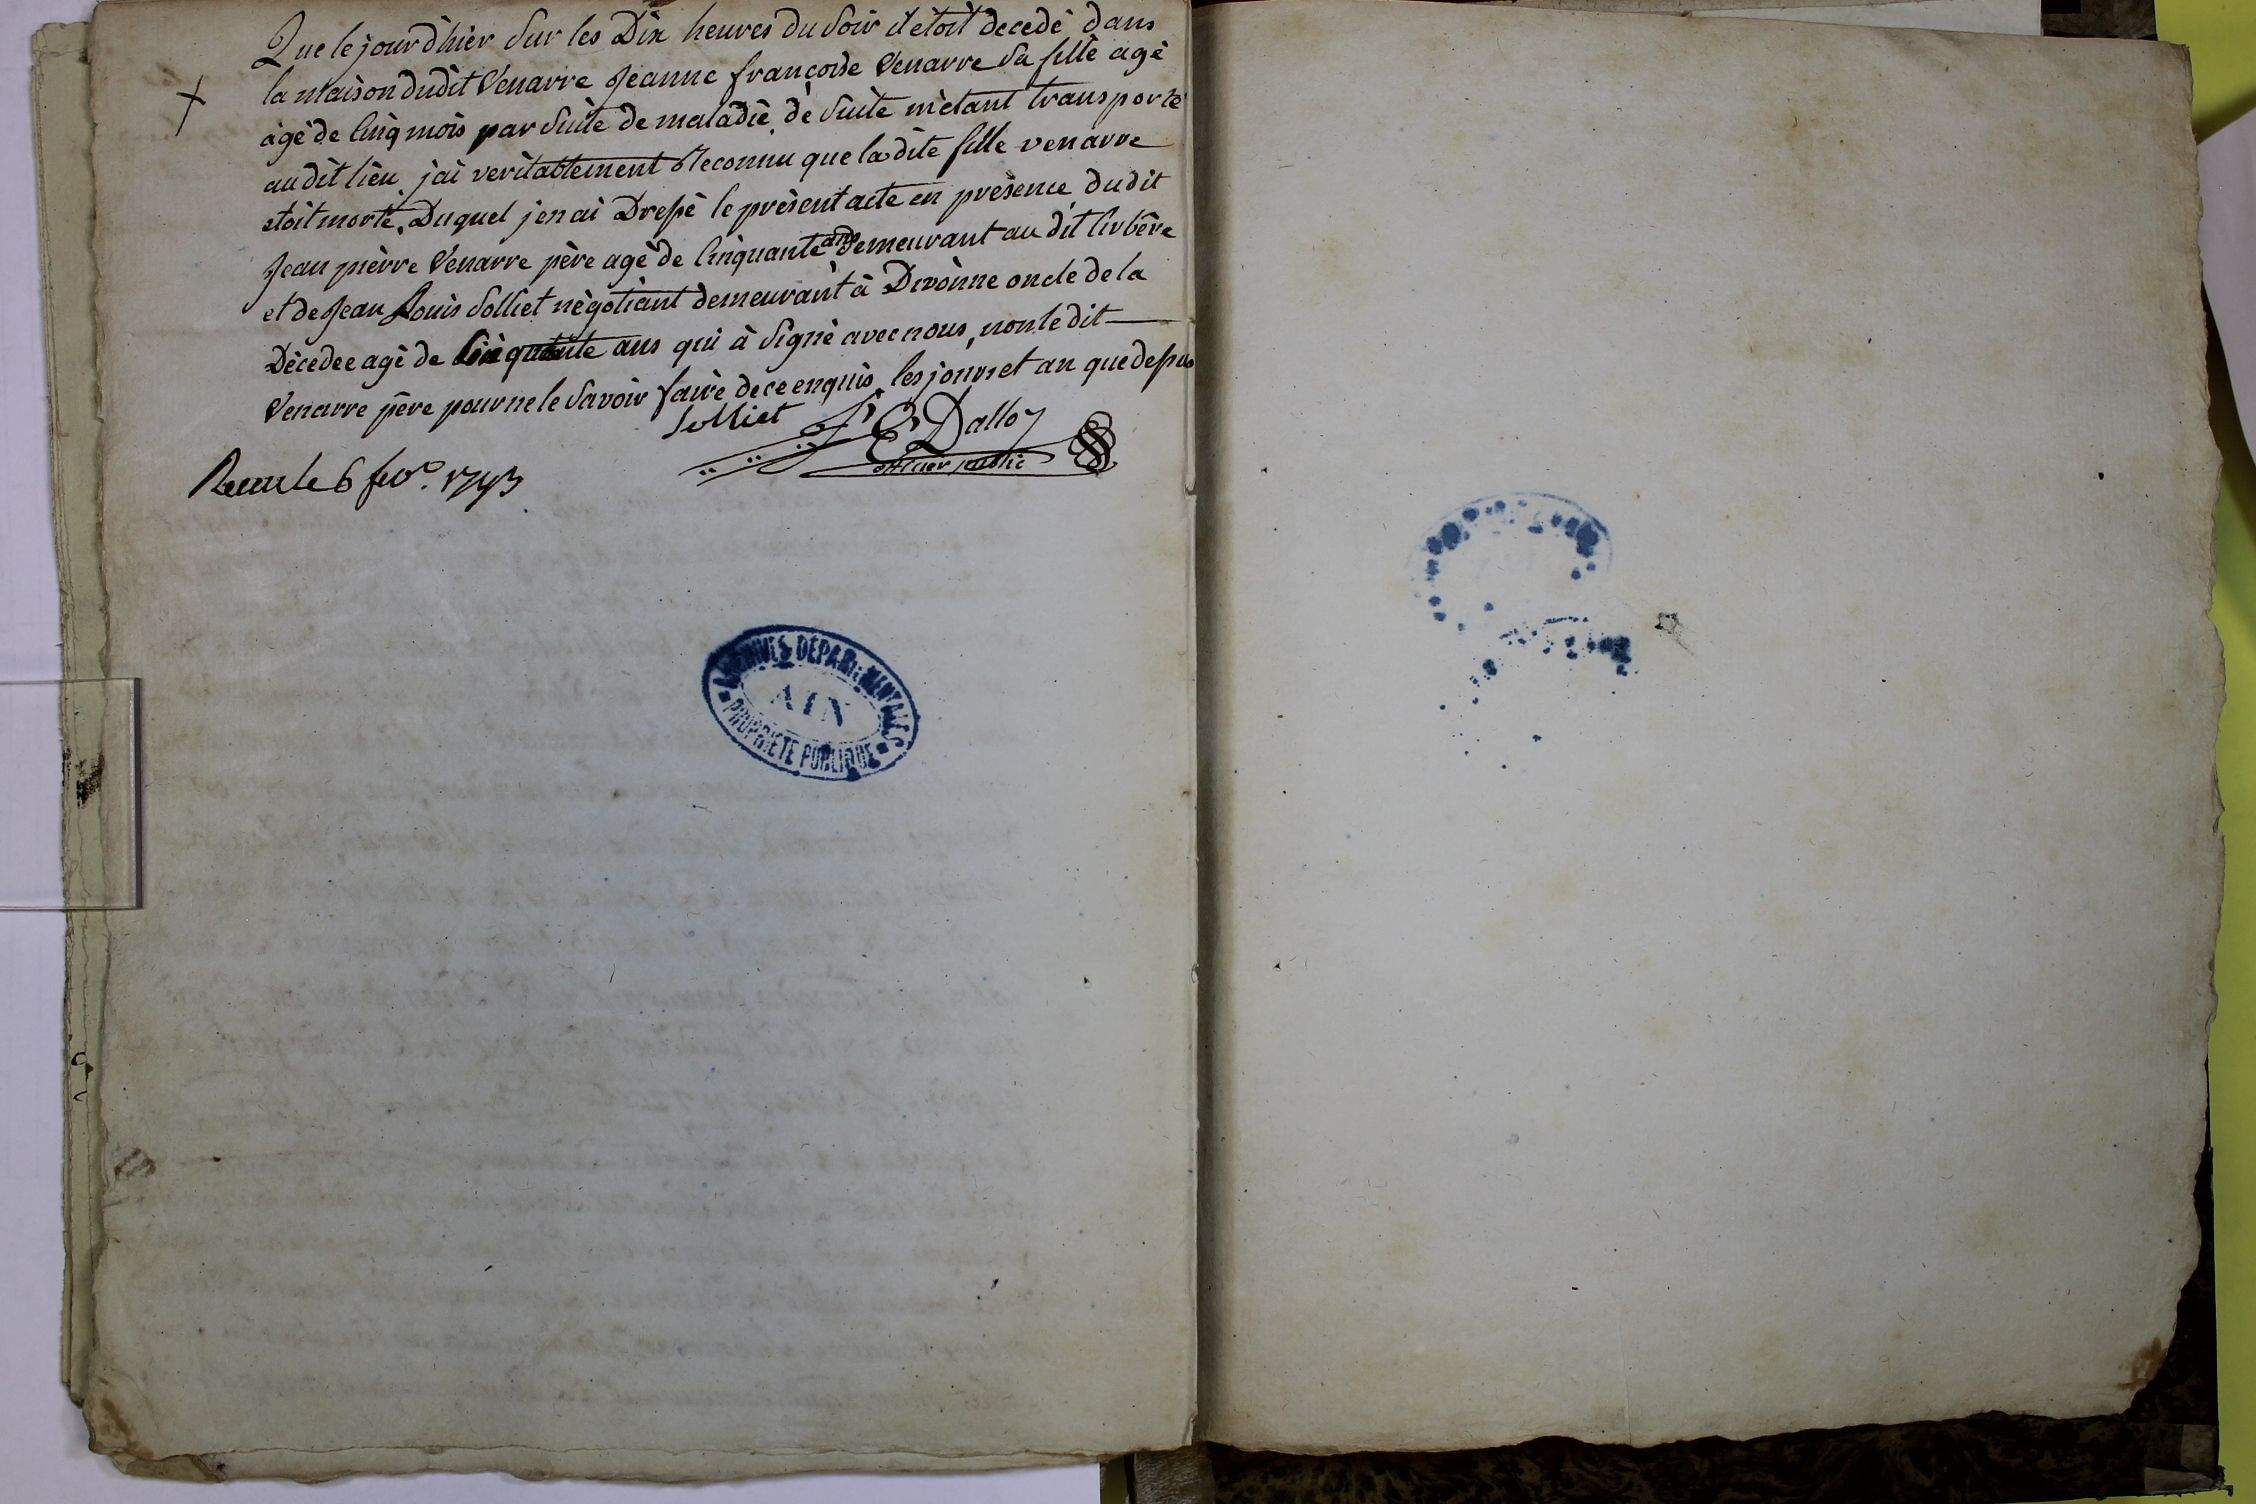 Que le jour d'hièr sur les Dix heures du soir il étoit decedé dans
la maison dudit Venarre Jeanne françoise Venarre sa fille agé
agé de Cinq mois par suite de maladie, de suite m'étant transporté
au dit lieu, j'ai veritablement Reconnu que la dite fille venarre
etoit morte, Duquel j'en ai Dressé le présent acte en présence dudit
Jean pièrre Venarre père agé de Cinquante ans Demeurant au dit
et de Jean Louis Solliet nègotiant demeurant à Divonne oncle de la
Décedée agé de Cinquante ans qui à signé avec nous, non le dit
Venarre père pour ne le savoir faire de ce enquis, les jour et an que dessus
Solliet Dalloz
officier public
Recu le 6 fevr. 1793
ARCHIVES DÉPARTEMENTALES
AIN
PROPRIÉTÉ PUBLIQUE